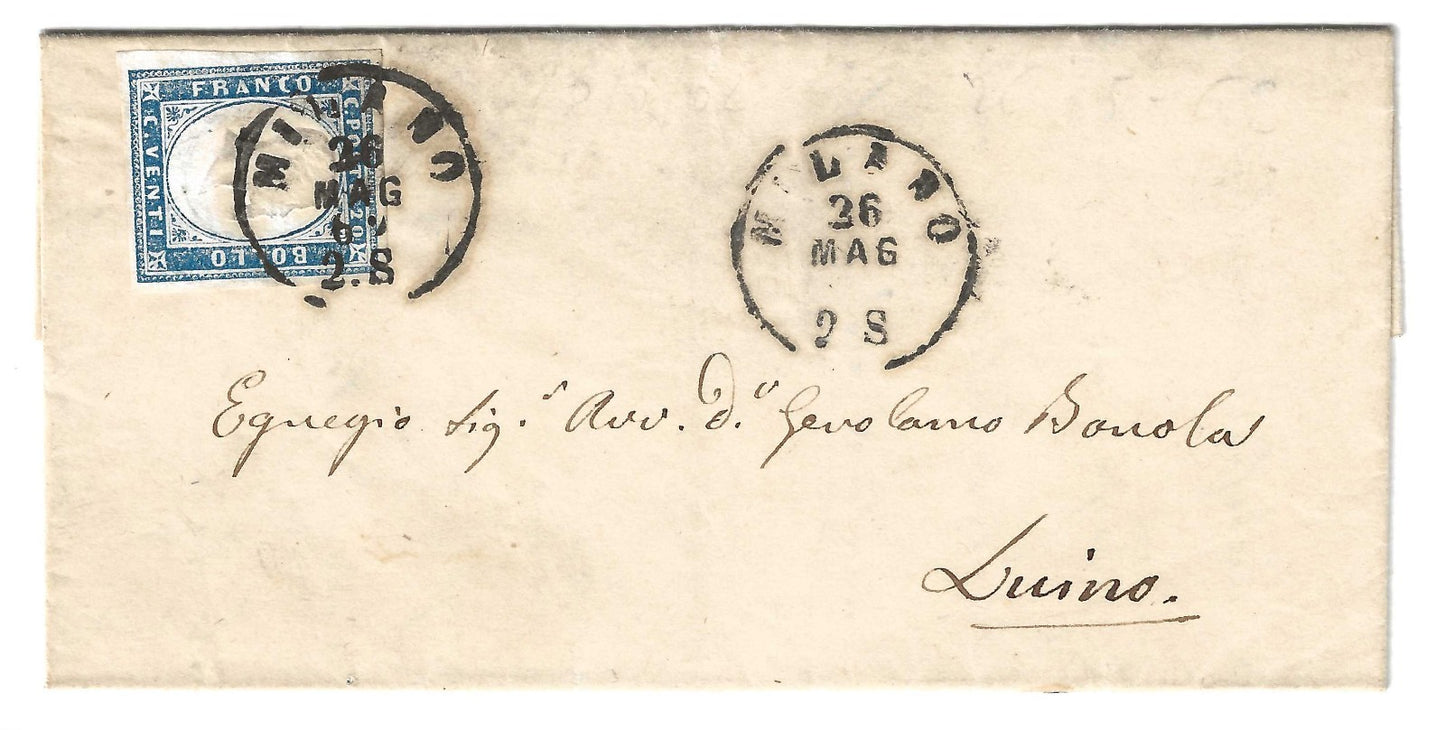 FRANCO
C. POSTE 20
BOLLO
C. VENTI
MILANO
26
MAG
2.S
MILANO
26
MAG
2 S
Egregio Sig.r Avv. D.r Gerolamo Bonola
Luino.